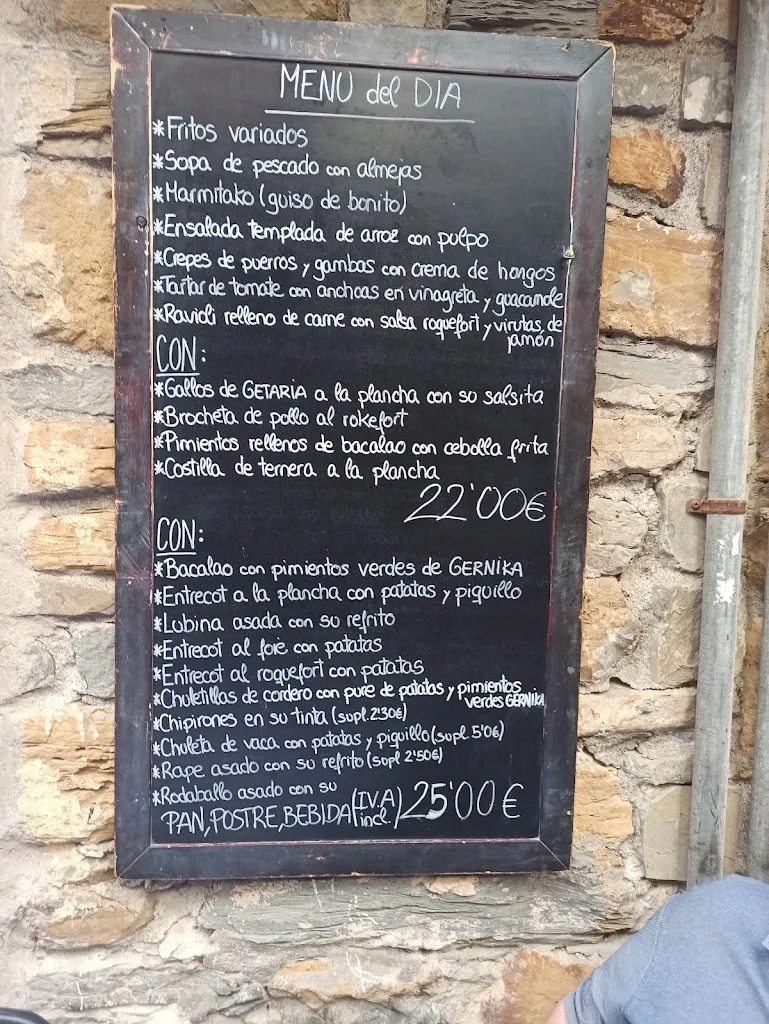 MENU del DIA
*Fritos variados
*Sopa de pescado con almejas
*Marmitako (guiso de bonito)
*Ensalada templada de arroz con pulpo
*Crepes de puerros y gambas con crema de hongos
*Tartar de tomate con anchoas en vinagreta y guacamole
*Ravioli relleno de carne con salsa roquefort y virutas de
jamón
CON:
*Gallos de GETARIA a la plancha con su salsita
*Brocheta de pollo al rokefort
*Pimientos rellenos de bacalao con cebolla frita
*Costilla de ternera a la plancha
22'00€
CON:
*Bacalao con pimientos verdes de GERNIKA
*Entrecot a la plancha con patatas y piquillo
*Lubina asada con su refrito
*Entrecot al foie con patatas
*Entrecot al roquefort con patatas
*Chuletillas de cordero con pure de patatas y pimientos
verdes GERNIKA
*Chipirones en su tinta (supl. 2'30€)
*Chuleta de vaca con patatas y piquillo (supl. 5'0€)
*Rape asado con su refrito (supl 2'50€)
*Rodaballo asado con su
PAN, POSTRE, BEBIDA (I.V.A incl.) 25'00€